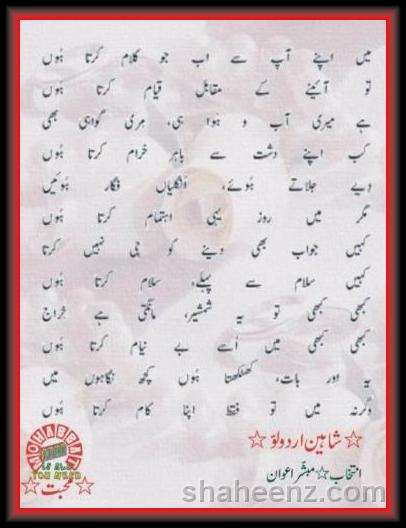 میں اپنے آپ سے اب جو کلام کرتا ہُوں
تو آئینے کے مقابل قیام کرتا ہُوں
ہے میری آب و ہوا ہی، مِری گواہی بھی
کب اپنے دشت سے باہر خرام کرتا ہُوں
دیے جلاتے ہُوئے، اُنگلیاں فگار ہُوئیں
مگر میں روز یہی اہتمام کرتا ہُوں
کہیں جواب بھی دینے کو جی نہیں کرتا
کہیں سلام سے پہلے، سلام کرتا ہُوں
کبھی کبھی تو یہ شمشیر، مانگتی ہے خراج
کبھی کبھی میں اُسے بے نیام کرتا ہُوں
یہ اور بات، کھٹکھتا ہُوں کچھ نگاہوں میں
وگرنہ میں تو فقط اپنا کام کرتا ہُوں
☆ شاہین اردو لوّ ☆
انتخاب ☆ مبشر اعوان
MOHABBAT
YOU NEED
☆ محبت ☆
shaheenz.com